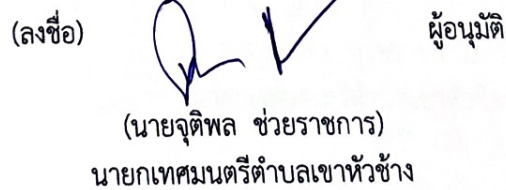 (ลงชื่อ) ผู้อนุมัติ
(นายจุติพล ช่วยราชการ)
นายกเทศมนตรีตำบลเขาหัวช้าง